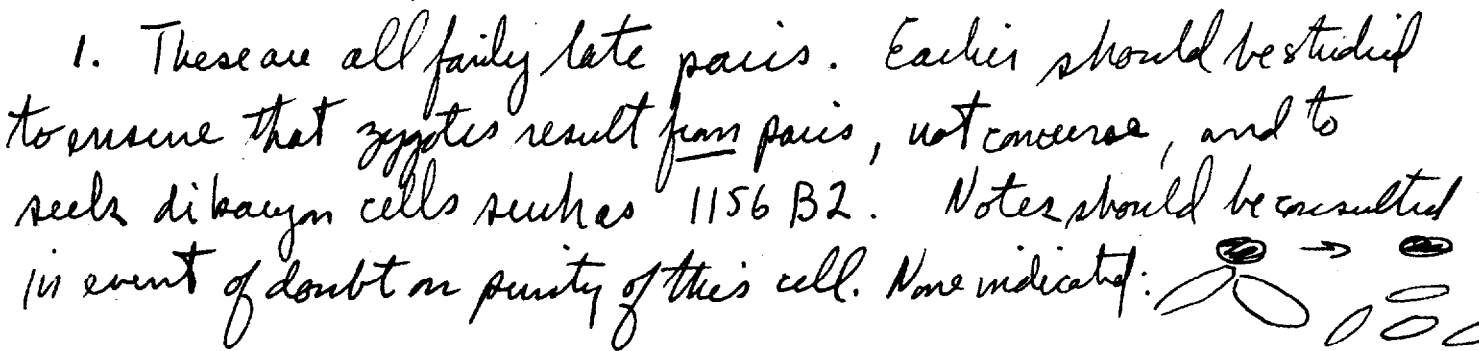 1. These are all fairly late pairs. Earlier should be studied
to ensure that zygotes result from pairs, not converse, and to
seek dikaryon cells such as 1156 B2. Notes should be consulted
in event of doubt on purity of this cell. None indicated: